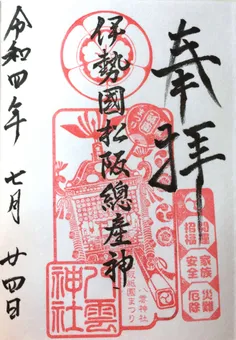 奉拝
伊勢國松阪總産神
令和四年 七月 廿四日
八雲神社
祇園まつり
八雲神社
松阪祇園まつり
開運
招福
家族
安全
災難
厄除